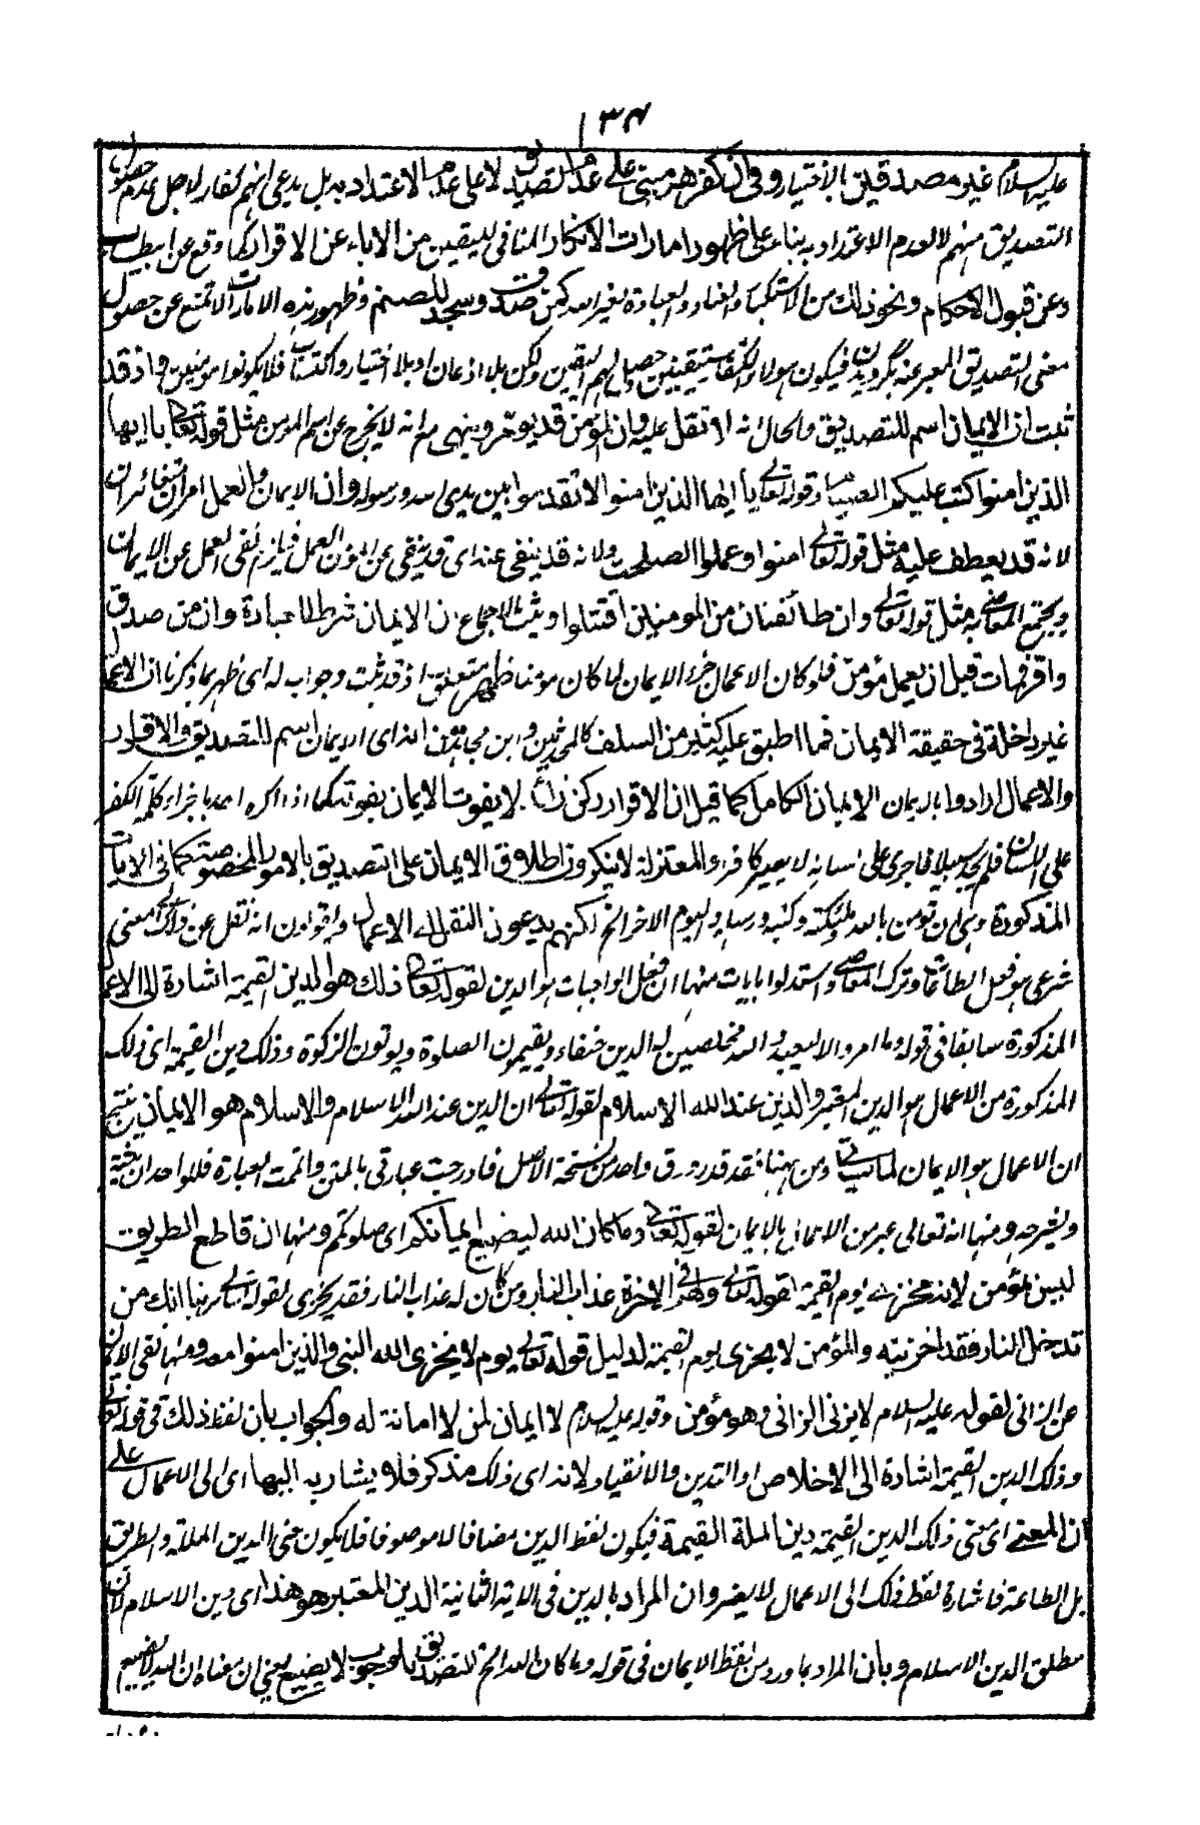 ١٣٤
عليه السلام غير مصدقين بالأختيار وفي ان كفرهم مبنى على عدم التصديق لا على عدم الاعتداد به بل يدعى انهم كفار لاجل عدم حصول
التصديق منهم لا لعدم الاعتداد به بناء على ظهور امارات الانكار المنافى لليقين من الاباء عن الاقرار كما وقع عن ابيطالب
وعن قبول الاحكام ونحو ذلك من الاستكبار والعناد والعبادة لغير الله كمن صدق وسجد للصنم وظهور هذه الامارات لا تمنع عن حصول
معنى التصديق المعبر عنه بگرويدن فيكون هولاء الكفار مستيقنين حصل لهم اليقين ولكن بلا اذعان او بلا اختيار واكتساب فلا يكونوا مؤمنين واذ قد
ثبت ان الايمان اسم للتصديق والحال انه لا نقل عليه وان المؤمن قد يؤمر وينهى مع انه لا يخرج عن اسم المؤمن مثل قوله تعالى يا ايها
الذين امنوا كتب عليكم الصيام وقوله تعالى يا ايها الذين امنوا لا تقدموا بين يدى الله ورسوله وان الايمان والعمل امران متغائران
لانه قد يعطف عليه مثل قوله تعالى امنوا وعملوا الصلحت ولانه قد ينفى عنه اى قد ينفى عن المؤمن العمل فيلزم نفى العمل عن الايمان
ويجتمع المعاصى به مثل قوله تعالى وان طائفتان من المومنين اقتتلوا ويثبت بالاجماع ان الايمان شرط للعبادة وان من صدق
واقر فمات قبل ان يعمل مؤمن فلو كان الاعمال جزء الايمان لما كان مومنا ظهر متعلق اذ قد ثبت وجواب له اى ظهر بما ذكرنا ان الاعمال
غير داخلة فى حقيقة الايمان فما اطبق عليه كثير من السلف كالمحدثين وابن مجاهد من انه اى الايمان اسم للتصديق والاقرار
والاعمال ارادوا بالايمان الايمان الكامل كما قيل ان الاقرار ركن زائد لا يفوت الايمان بفوته كما اذا اكره احد باجراء كلمة الكفر
على اللسان فلم يجد سبيلا فاجرى على لسانه لا يصير كافرا والمعتزلة لا ينكرون اطلاق الايمان على التصديق بالامور المخصوصة كما فى الايات
المذكورة وهى ان تومن بالله وملئكته وكتبه ورسله واليوم الاخر الخ لكنهم يدعون النقل الى الاعمال ويقولون انه نقل عن ذلك الى معنى
شرعى هو فعل الطاعات وترك المعاصى واستدلوا بايات منها ان فعل الواجبات هو الدين لقوله تعالى ذلك هو الدين القيمة اشارة الى الاعمال
المذكورة سابقا فى قوله وما امروا الا ليعبدوا الله مخلصين له الدين حنفاء ويقيمون الصلوة ويوتون الزكوة وذلك دين القيمة اى ذلك
المذكورة من الاعمال هو الدين القيمة والدين عند الله الاسلام لقوله تعالى ان الدين عند الله الاسلام والاسلام هو الايمان ينتج
ان الاعمال هو الايمان لما سياتى ومن ههنا فقد قدر ورق واحد من نسخة الاصل فادرجت عبارتى بالمتن واتممت العبارة فللواحد ان يثبته
ويشرحه ومنها انه تعالى عبر عن الاعمال بالايمان لقوله تعالى وما كان الله ليضيع ايمانكم اى صلوتكم ومنها ان قاطع الطريق
ليس بمؤمن لانه مخزى يوم القيمة لقوله تعالى ولهم فى الاخرة عذاب النار ومن كان له عذاب النار فقد يخزى لقوله تعالى ربنا انك من
تدخل النار فقد اخزيته والمؤمن لا يخزى يوم القيمة لدليل قوله تعالى يوم لا يخزى الله النبى والذين امنوا معه ومنها نفى الايمان
عن الزانى لقوله عليه السلام لا يزنى الزانى وهو مؤمن وقوله عليه السلام لا ايمان لمن لا امانة له والجواب بان لفظ ذلك فى قوله تعالى
وذلك الدين القيمة اشارة الى الاخلاص او التدين والانقياد لانه اى ذلك مذكر فلا يشار به اليها اى الى الاعمال على
ان المعنى اى معنى ذلك الدين القيمة دين الملة القيمة فيكون لفظ الدين مضافا لا موصوفا فلا يكون معنى الدين الملة والطريق
بل الطاعة فاشارة لفظ ذلك الى الاعمال لا يضر وان المراد بالدين فى الاية الثانية الدين المعتبر هو هذا اى دين الاسلام لان
مطلق الدين الاسلام وبان المراد بما ورد من لفظ الايمان فى قوله وما كان الله الخ التصديق بالوجوب لا يضيع يعنى ان معناه ان الله لا يضيع